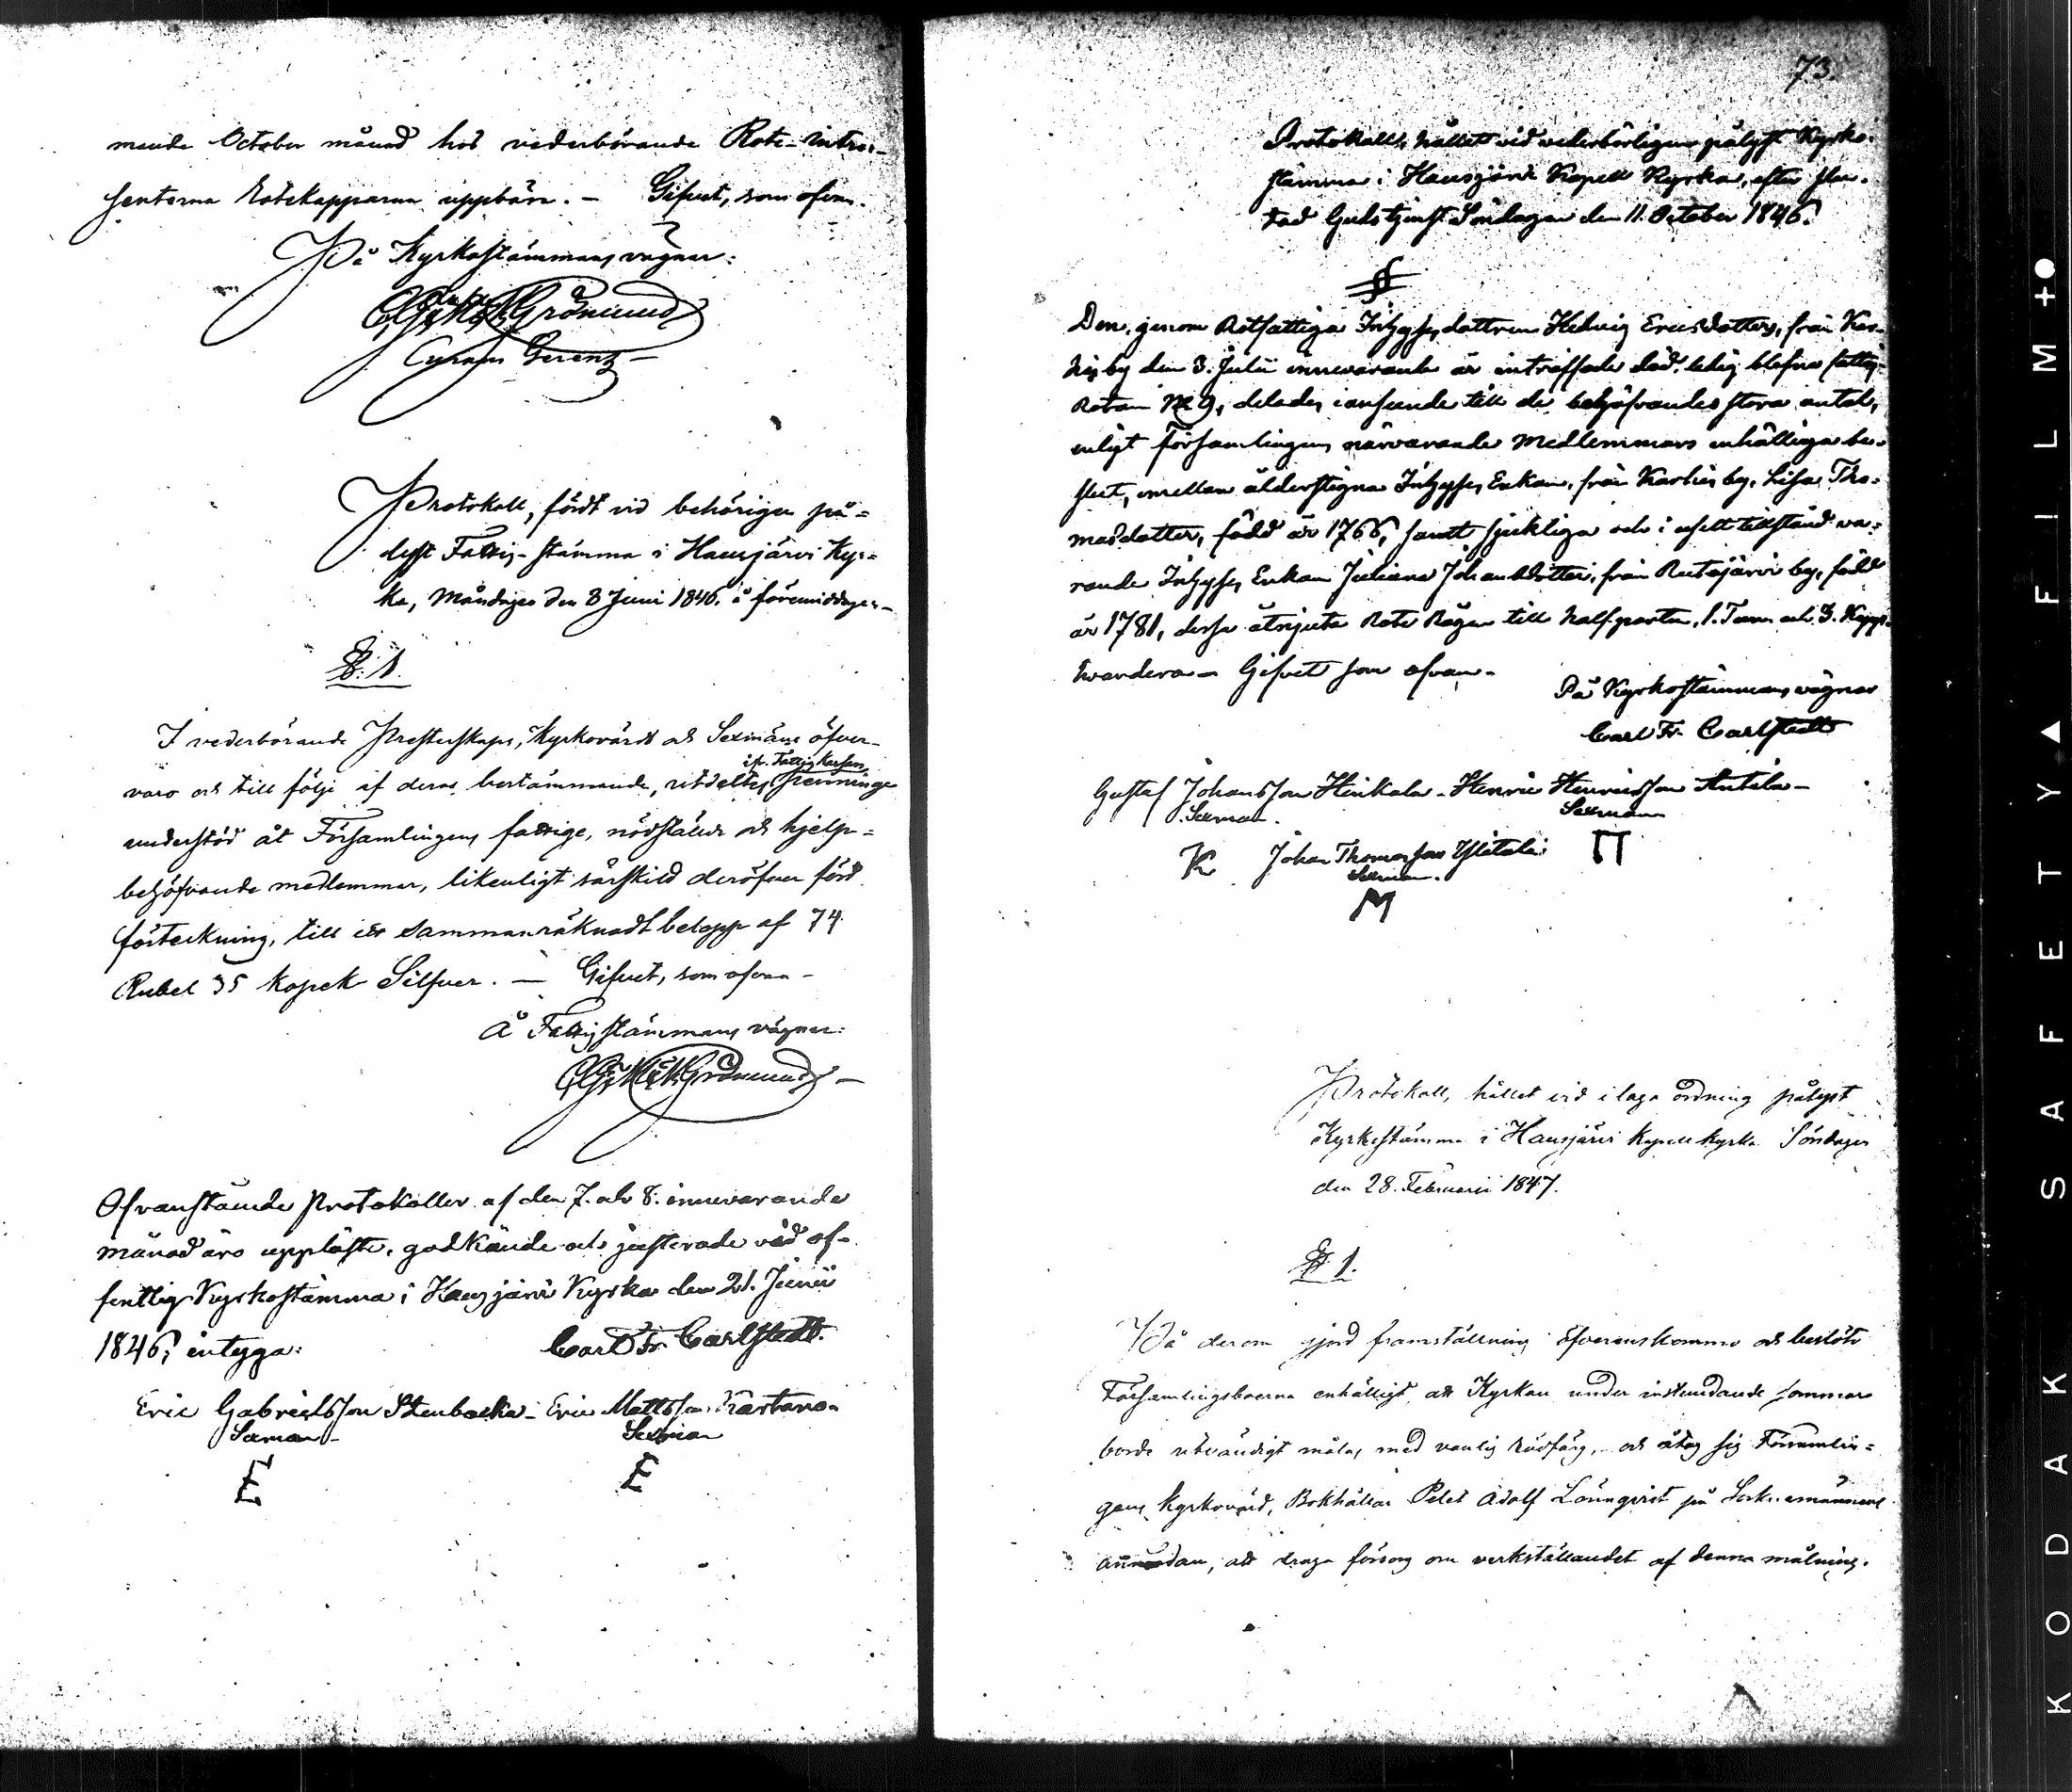 mande October månad hos vederbörande Rote-intres-
senterna Rotekapparna uppbära. — Gifvet, som ofvan.
På Kyrkostämmans vägnar:
Grönlund
Curam Gerens —
Protokoll, fördt vid behörigen på-
lyst Fattig-stämma i Hausjärvi Kyr-
ka, Måndagen den 8 Juni 1846. å förmiddagen —
§. 1.
I vederbörande Presterskaps, Kyrkovärds och Sexmäns öfver-
varo och till följe af deras bestämmande, utdeltes ifr. Fattig Kassan, penninge
understöd åt Församlingens fattige, nödstälde och hjelp-
behöfvande medlemmar, likenligt särskild deröfver förd
förteckning, till ett sammanräknadt belopp af 74
Rubel 35 kopek Silfver. — Gifvet, som ofvan —
Å Fattigstämmans vägnar:
Grönlund —
Ofvanstående Protokoller af den 7. och 8. innevarande
månad äro uppläste, godkände och justerade vid of-
fentlig Kyrkostämma i Hausjärvi Kyrka den 21. Junii
1846, intyga: Carl Fr. Carlstedt.
Eric Gabrielsson Stenbacka — Eric Mattsson Kartano —
Sexman — Sexman
E E
73.
Protokoll, hållet vid vederbörligen pålyst Kyrko-
stämma i Hausjärvi Kapell Kyrka, efter slu-
tad Gudstjenst Söndagen den 11. October 1846.
§
Den, genom Rotfattiga Inhyses dottren Hedvig Ericsdotters, från Kar-
his by den 3. Julii innevarande år inträffade död, ledig blefne fattig-
Rotan No 9, delades i anseende till de behöfvandes stora antal,
enligt Församlingens närvarande Medlemmars enhälliga be-
slut, emellan ålderstigna Inhyses Enkan, från Karhis by, Lisa Tho-
masdotter, född år 1766, samt sjukliga och i uselt tillstånd va-
rande Inhyses Enkan Juliana Johansdotter, från Rutajärvi by, född
år 1781, dessa åtnjuta Rote Rågen till halfparten, 1. Tunn och 3. Kapp.
hvardera — Gifvet som ofvan —
På Kyrkostämmans vägnar
Carl Fr. Carlstedt
Gustaf Johansson Heikala — Henric Henricsson Antila —
Sexman. Sexman
K Johan Thomasson Ylitalo Π
Sexman.
M
Protokoll, hållet vid i laga ordning pålyst
Kyrkostämma i Hausjärvi Kapell kyrka Söndagen
den 28. Februarii 1847.
§ 1.
På derom gjord framställning öfverenskommo och beslöto
Församlingsboerna enhälligt, att Kyrkan under instundande sommar
borde utvändigt målas med vanlig rödfärg, — och åtog sig Församlin-
gens Kyrkovärd, Bokhållar Peter Adolf Lönnqvist på Socknemännens
anmodan, att draga försorg om verkställandet af denna målning.
KODAK SAFETY ▲ FILM +●